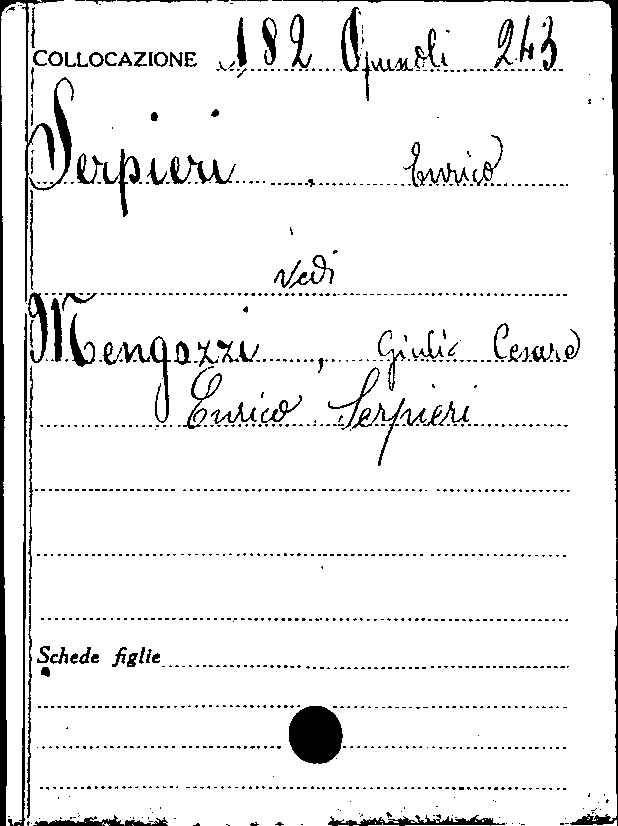 COLLOCAZIONE 182 Opuscoli 243
Serpieri, Enrico
vedi
Mengozzi, Giulio Cesare
Enrico Serpieri
Schede figlie